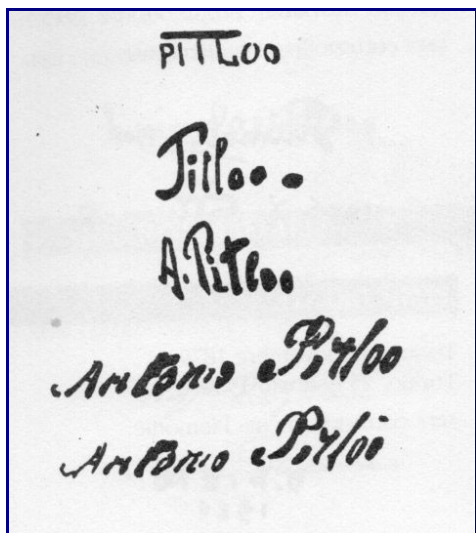 PITLOO
Pitloo.
A. Pitloo
Antonio Pitloo
Antonio Pitloo